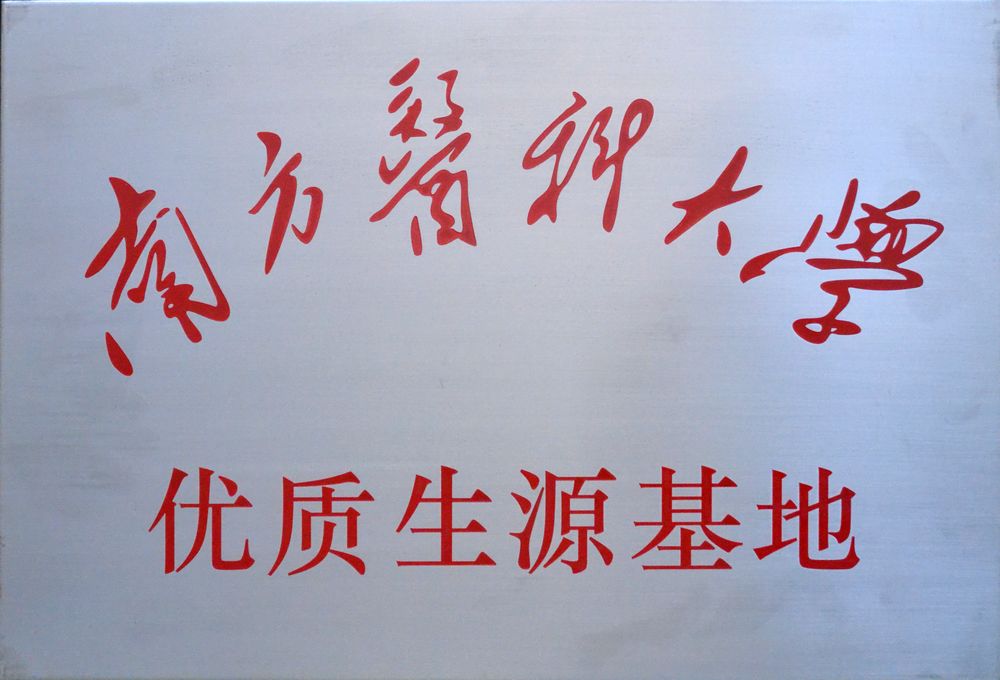 南方醫科大學
优质生源基地